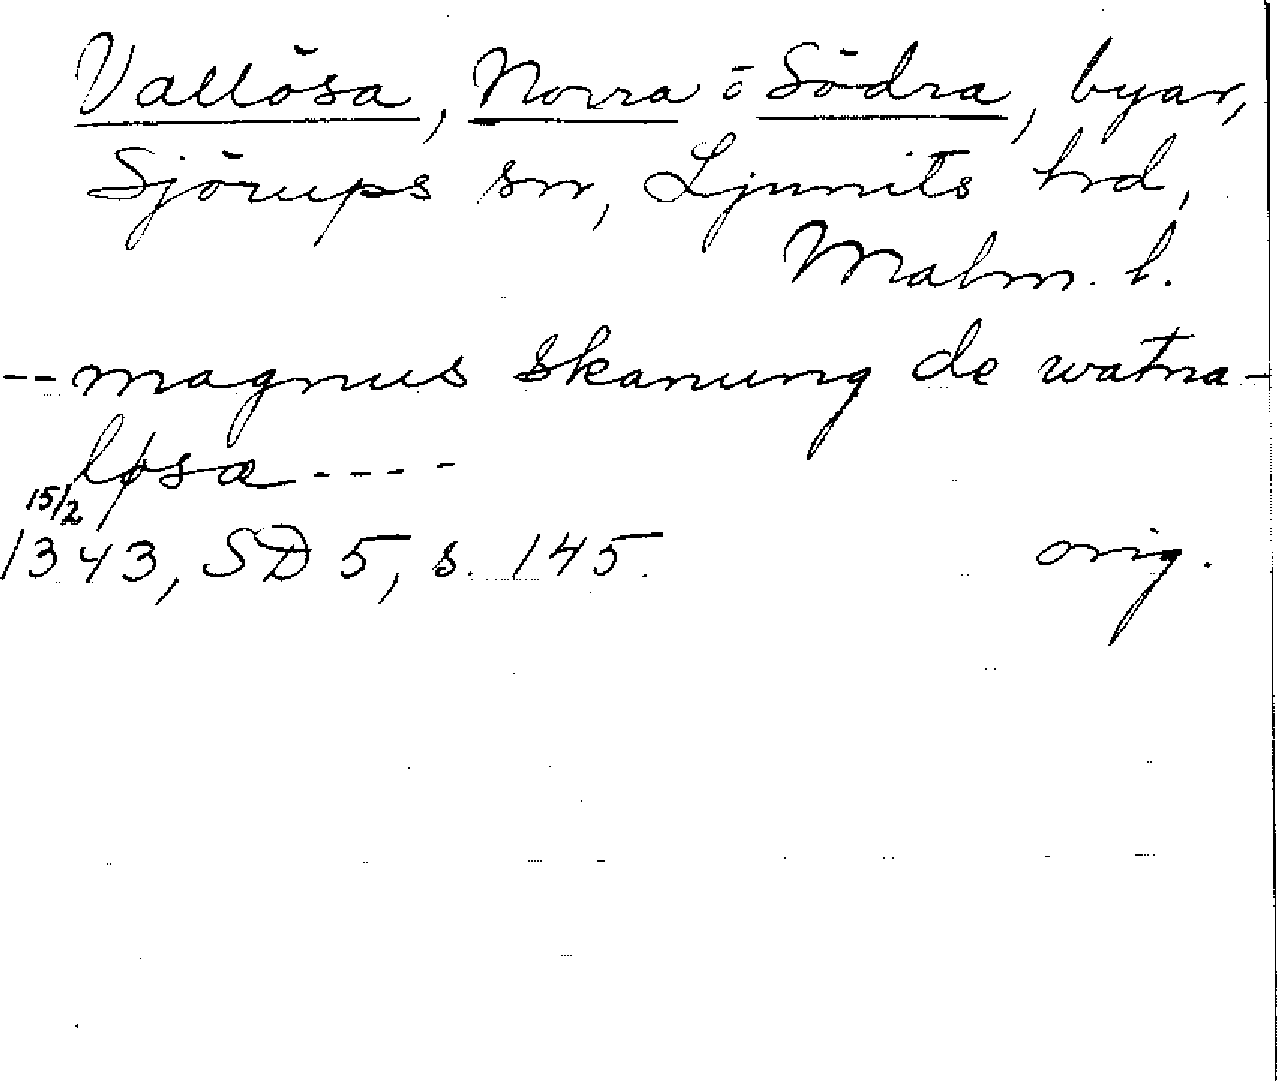 Vallösa, Norra o Södra, byar,
Sjörups sn, Ljunits hrd,
Malm. l.
-- magnus skanung de watna-
løsa ----
15/2
1343, SD 5, s. 145. orig.